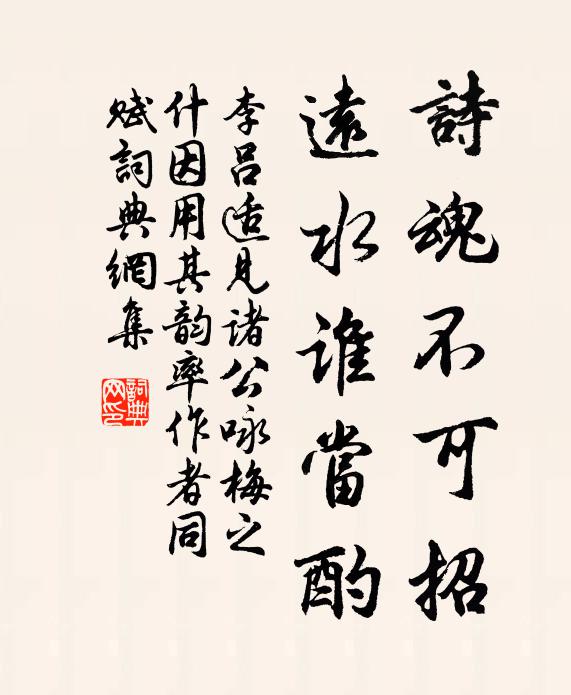 詩魂不可招
遠水誰當酌
李呂适見諸公咏梅之
什因用其韵率作者同
賦詞典網集
詞典网印